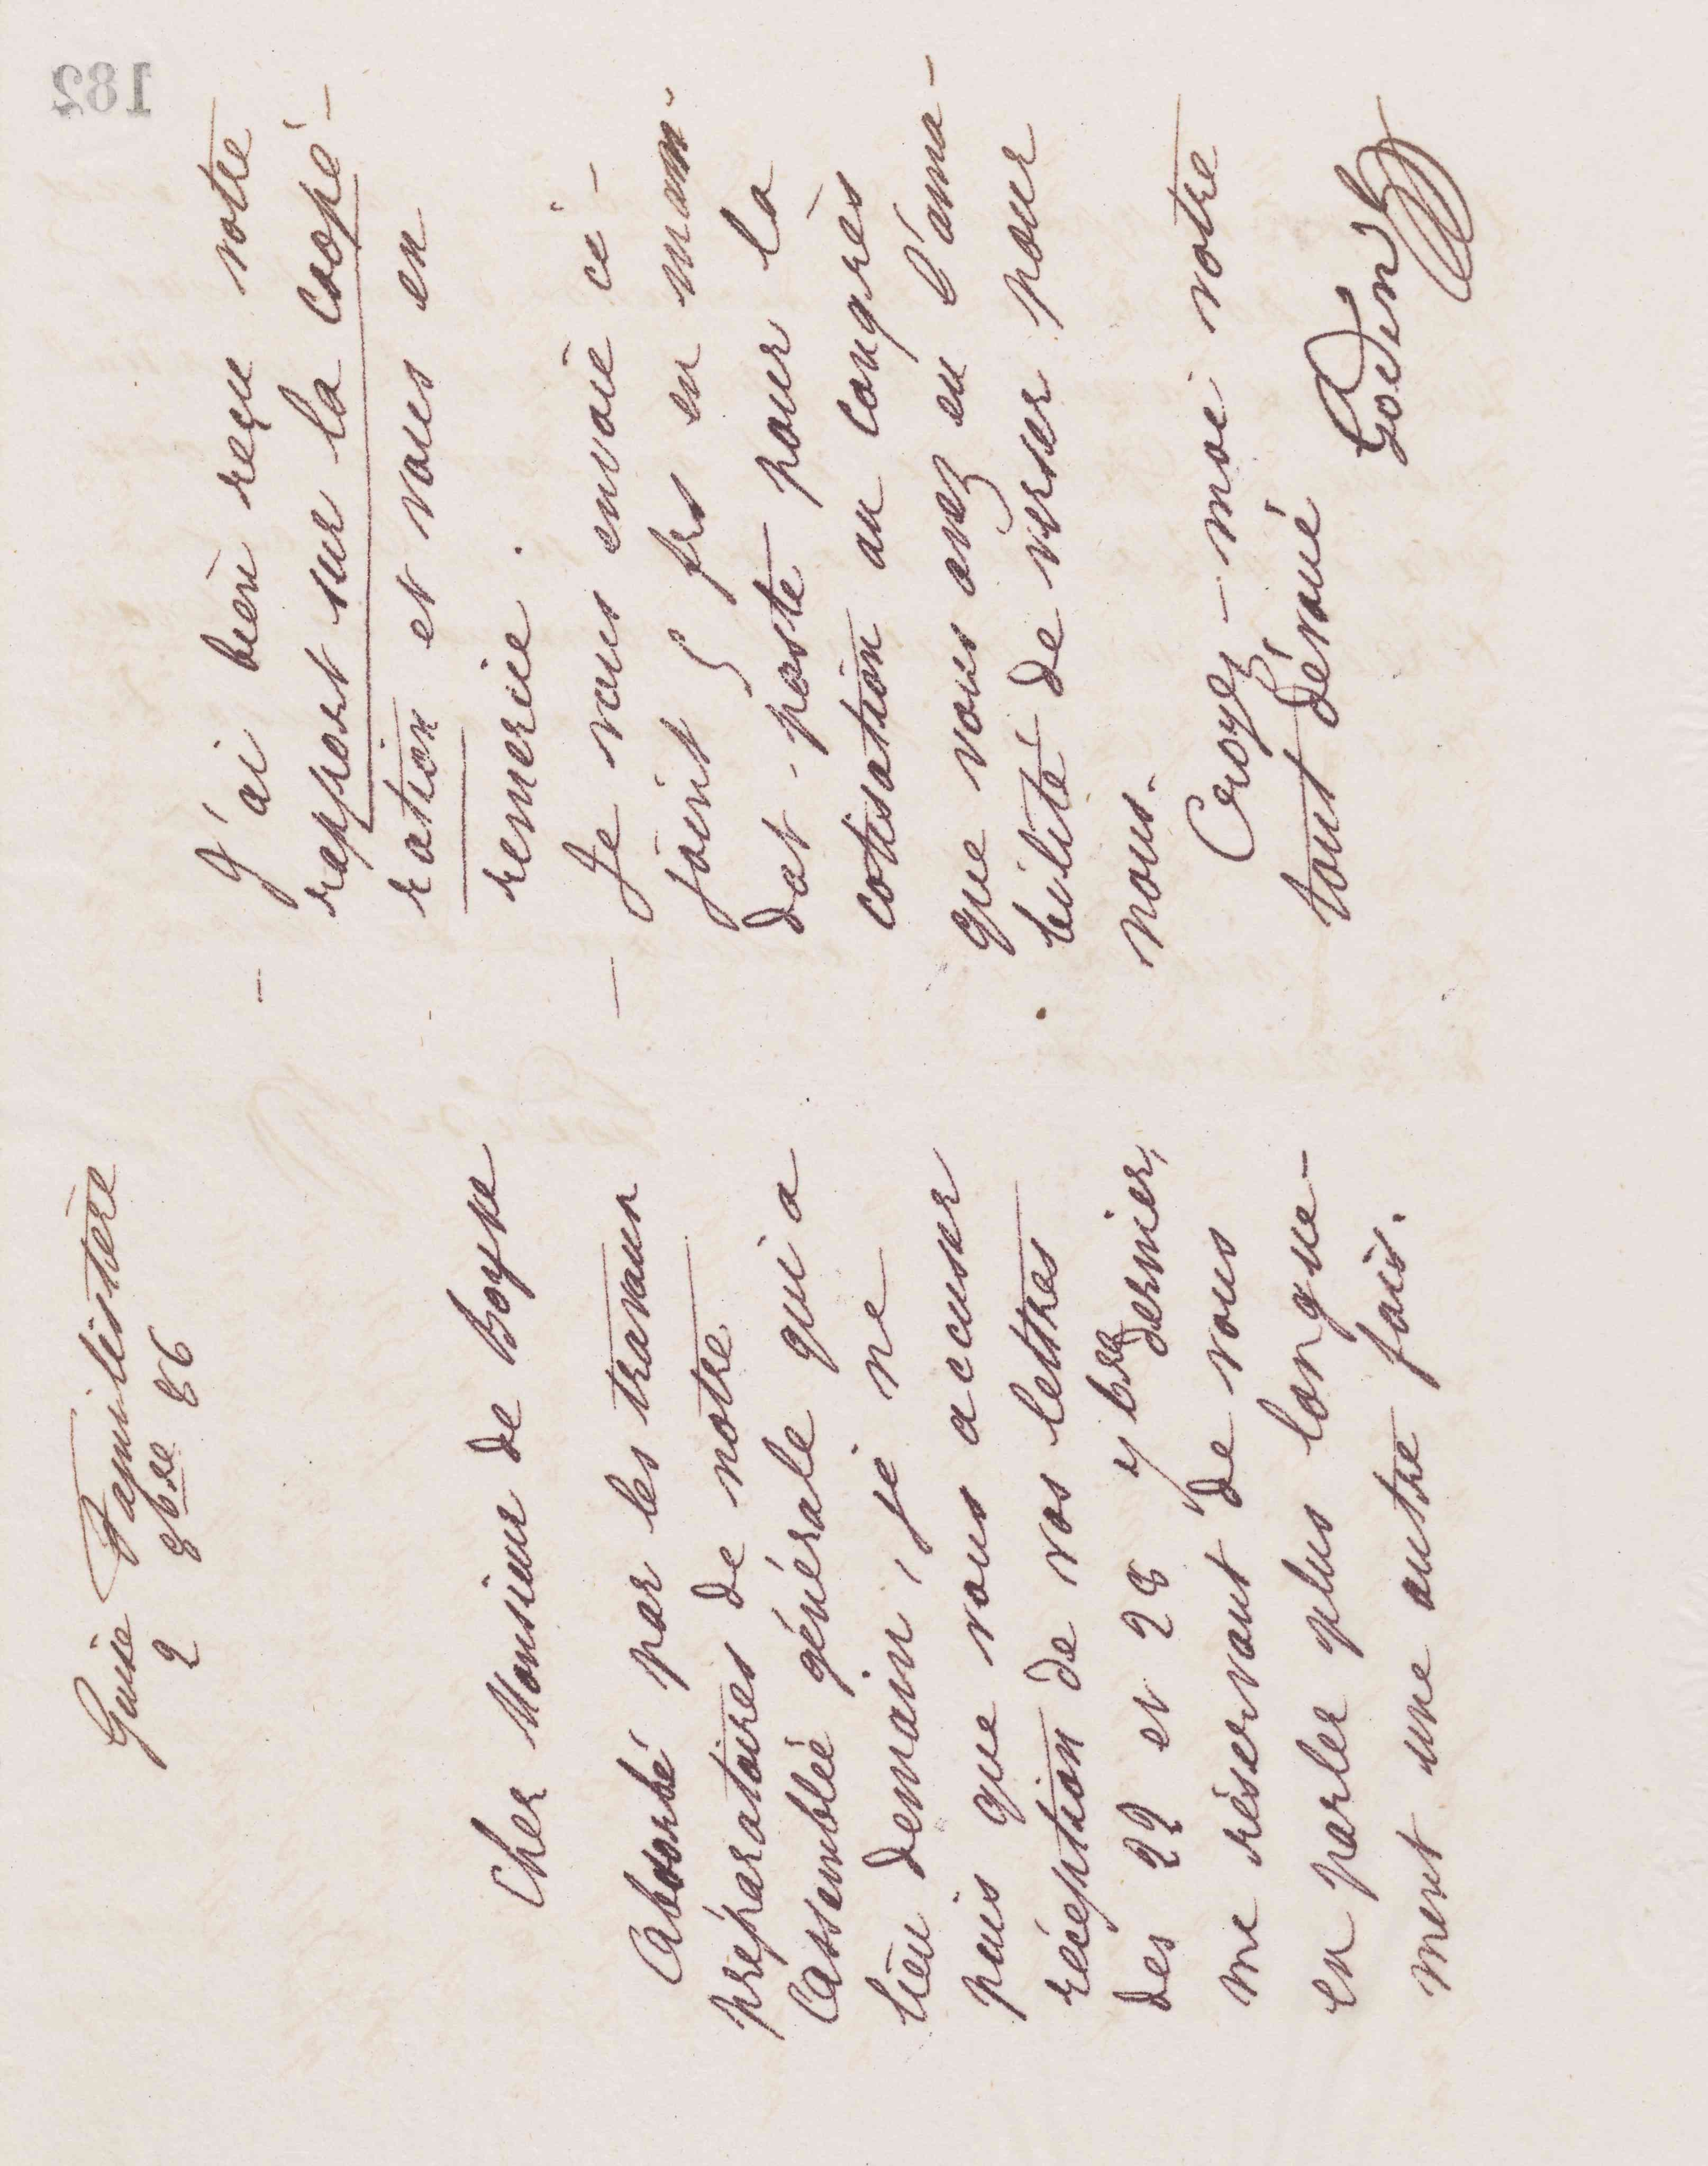 Guise Familistère
2 8bre 86
Cher Monsieur de Boyve
Absorbé par les travaux
préparatoires de notre
Assemblée générale qui a
lieu demain, je ne
puis que vous accuser
réception de vos lettres
des 22 et 28 7bre dernier,
me réservant de vous
en parler plus longue-
ment une autre fois.
J'ai bien reçu votre
rapport sur la coopé-
ration et vous en
remercie.
Je vous envoie ci-
joint 5 frs en man-
dat-poste pour la
cotisation au congrès
que vous avez eu l'ama-
bilité de verser pour
nous.
Croyez-moi votre
tout dévoué
Godin
182